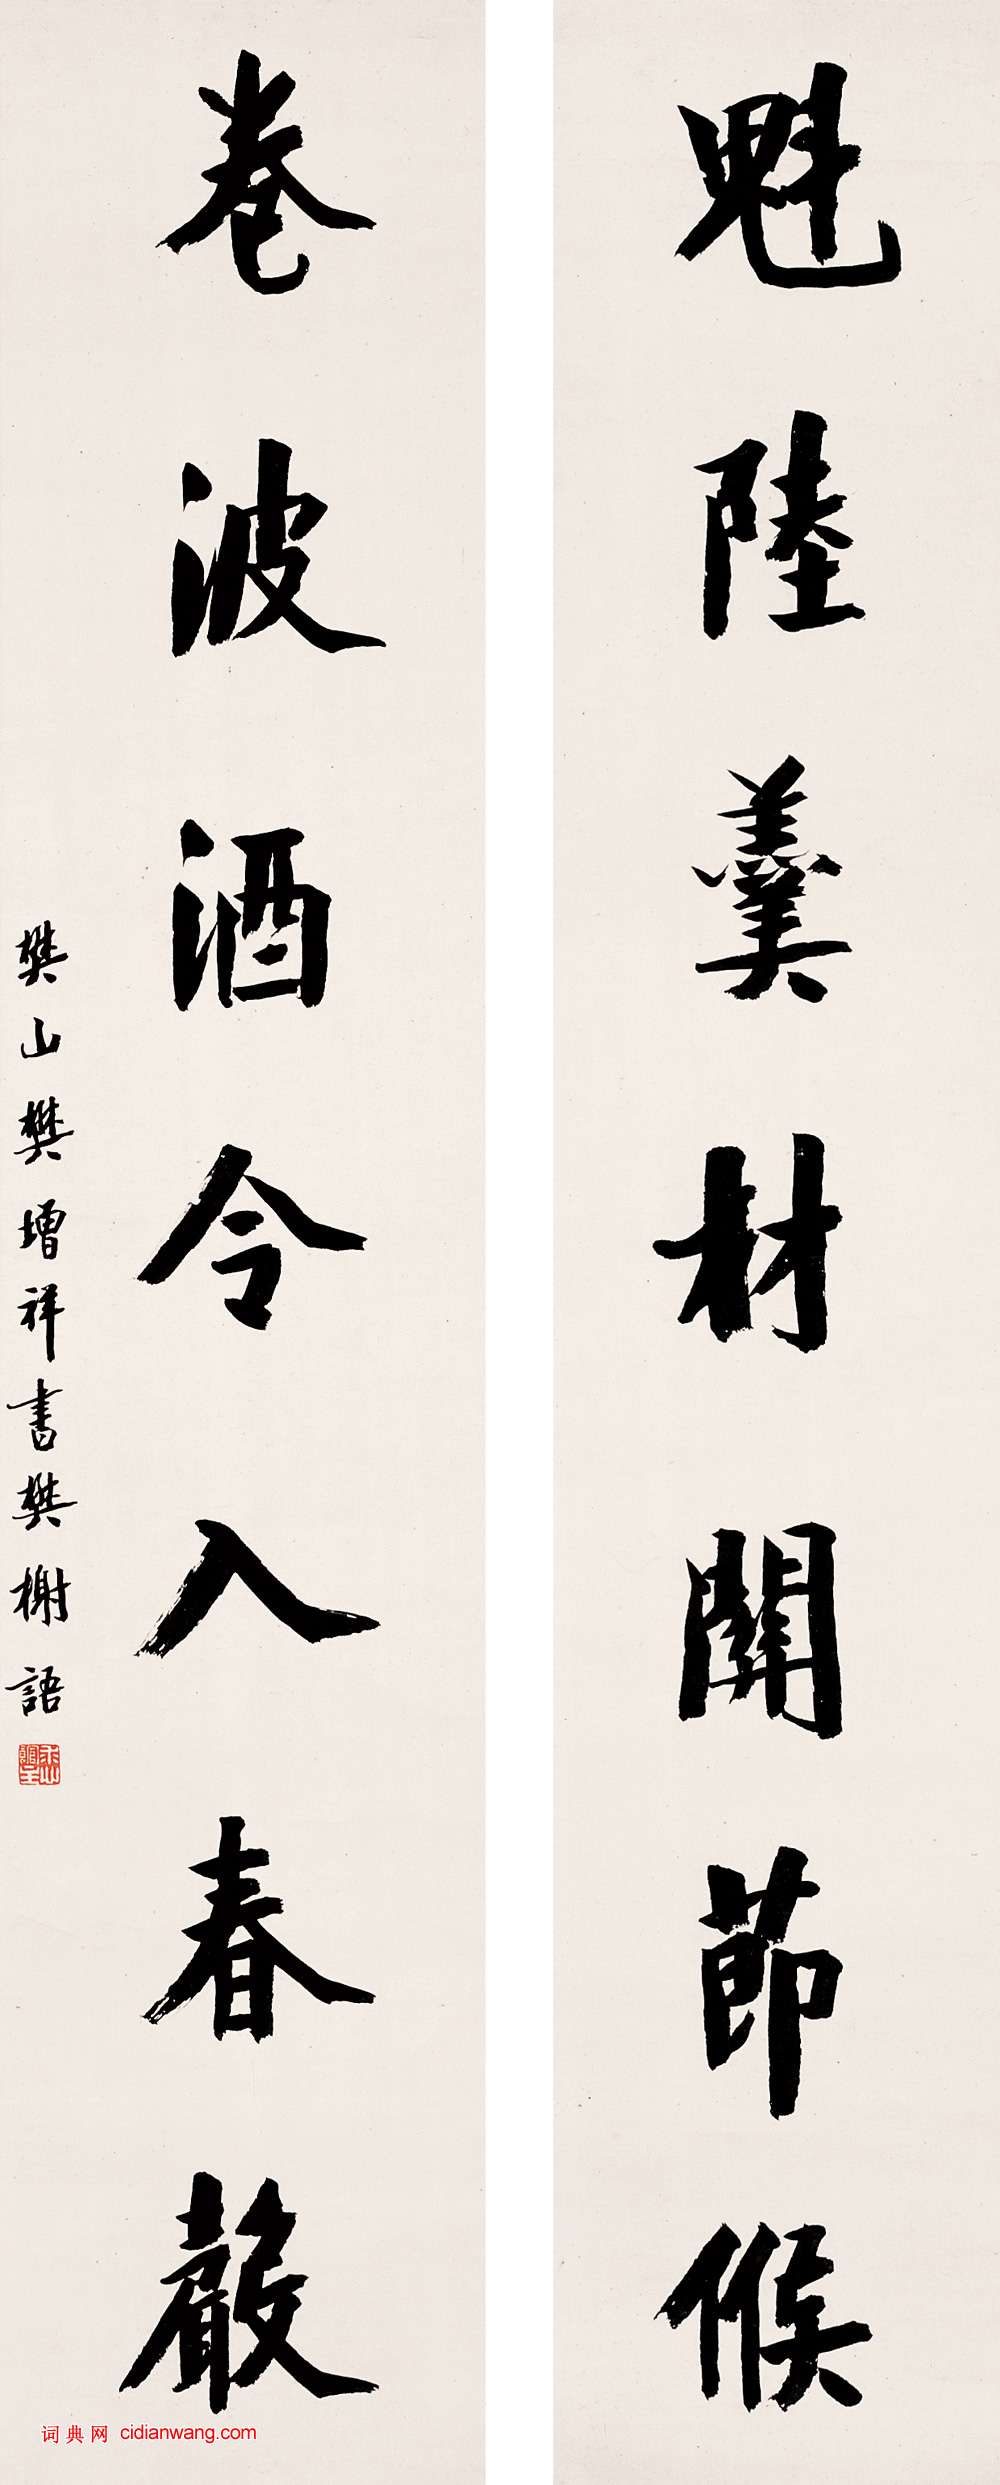 魁陸羹材關節候
卷波酒令入春嚴
樊山樊增祥書樊榭語
词典网 cidianwang.com